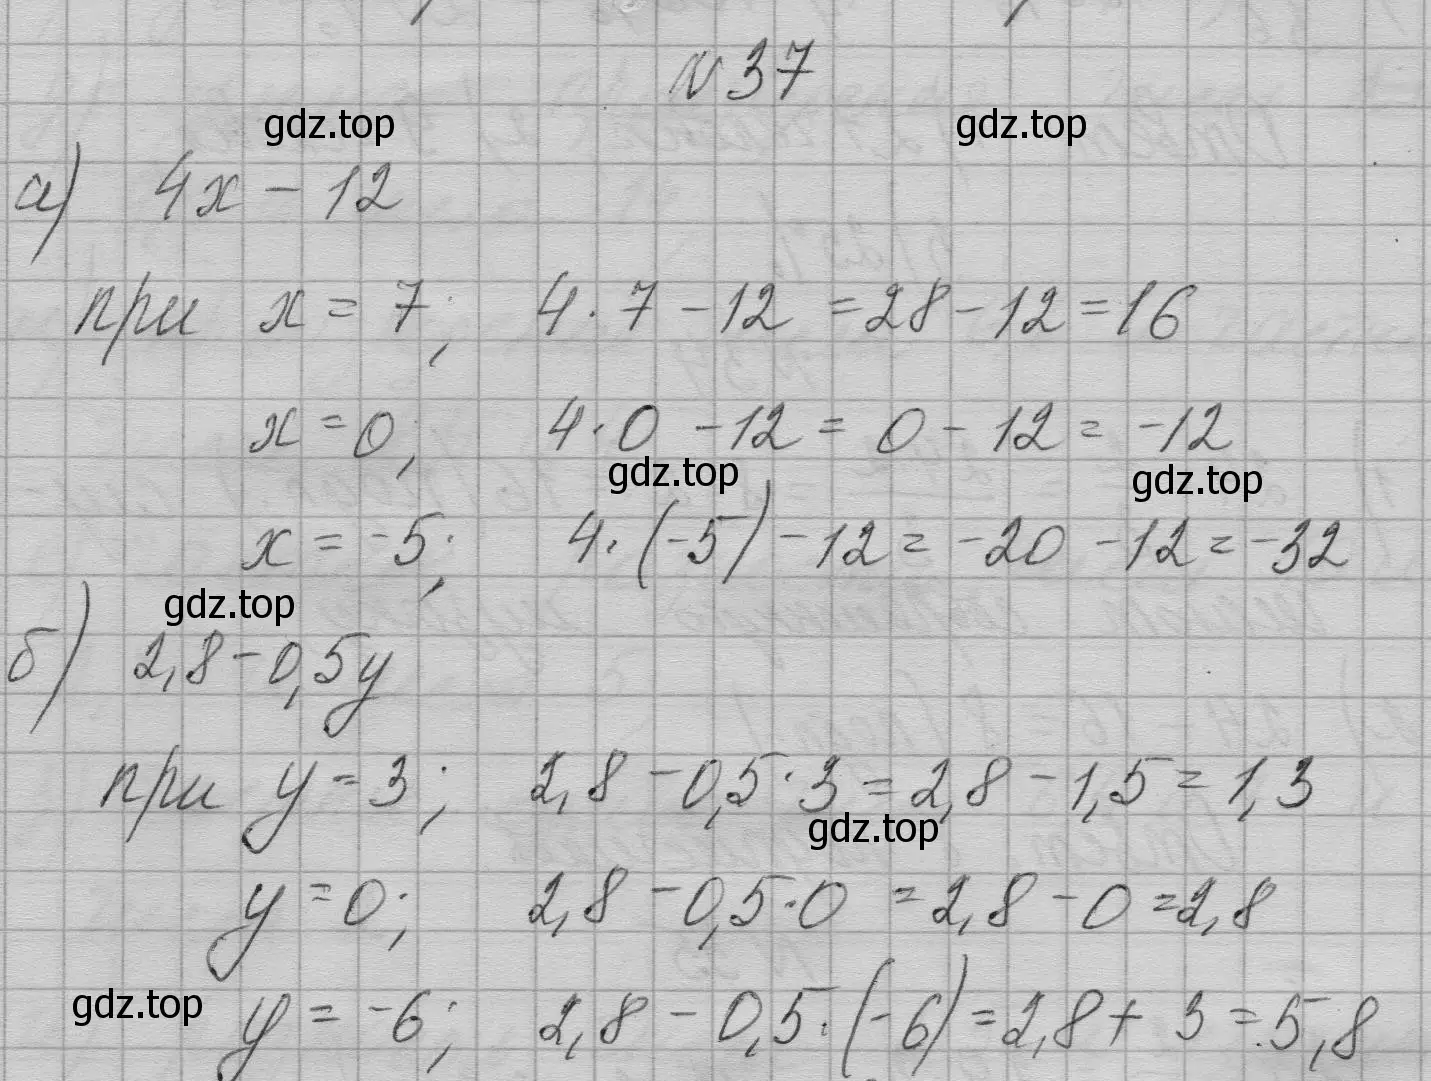 №37
gdz.top gdz.top
а) 4x - 12
при x = 7; 4 · 7 - 12 = 28 - 12 = 16
x = 0; 4 · 0 - 12 = 0 - 12 = -12
gdz.top gdz.top
x = -5; 4 · (-5) - 12 = -20 - 12 = -32
gdz.top
б) 2,8 - 0,5y
при y = 3; 2,8 - 0,5 · 3 = 2,8 - 1,5 = 1,3
gdz.top
y = 0; 2,8 - 0,5 · 0 = 2,8 - 0 = 2,8
gdz.top
y = -6; 2,8 - 0,5 · (-6) = 2,8 + 3 = 5,8